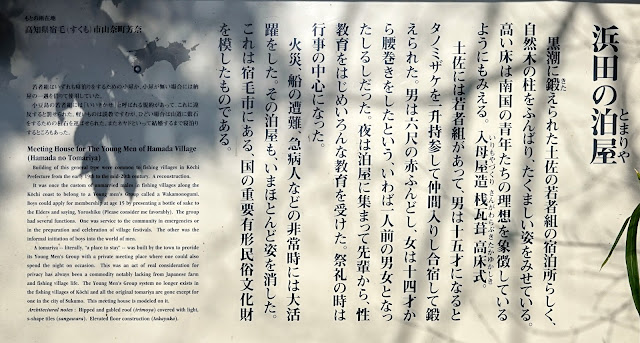 浜田の泊屋
とまりや
黒潮に鍛えられた土佐の若者組の宿泊所らしく、
自然木の柱をふんばり、たくましい姿をみせている。
高い床は南国の青年たちの理想を象徴している
ようにもみえる。入母屋造 桟瓦葺 高床式。
土佐には若者組があって、男は十五才になると
タノミザケを一升持参して仲間入りし合宿して鍛
えられた。男は六尺の赤ふんどし、女は十四才か
ら腰巻きをしたという、いわば一人前の男女となっ
たしるしだった。夜は泊屋に集まって先輩から、性
教育をはじめいろんな教育を受けた。祭礼の時は
行事の中心になった。
火災、船の遭難、急病人などの非常時には大活
躍をした。その泊屋も、いまほとんど姿を消した。
これは宿毛市にある、国の重要有形民俗文化財
を模したものである。
高知県宿毛(すくも)市山奈町芳奈
Meeting House for The Young Men of Hamada Village
(Hamada no Tomariya)
Building of this general type were common to fishing villages in Kōchi
Prefecture from the early to the mid-20th century. A reconstruction.
It was once the custom of unmarried males in fishing villages along the
Kōchi coast to belong to a young men's group, called a Wakamonogumi.
Boys could apply for membership at age 15 by presenting a bottle of sake to
the Elders and saying, Yoroshiku (Please consider me favorably). The group
had several functions. One was service to the community in emergencies or
in the preparation and celebration of village festivals. The other was the
informal initiation of boys into the world of men.
A tomariya — literally, "a place to stay" — was built by the town to provide
its Young Men's Group with a private meeting place where one could also
spend the night on occasion. This was an act of real consideration for
privacy has always been a commodity notably lacking from Japanese farm
and fishing village life. The Young Men's Group system no longer exists in
the fishing villages of Kōchi and all the original tomariya are gone except for
one in the city of Sukumo. This meeting house is modeled on it.
Architectural notes : Hipped and gabled roof (irimoya) covered with light,
s-shape tiles (sangawara). Elevated floor construction (takayuka).